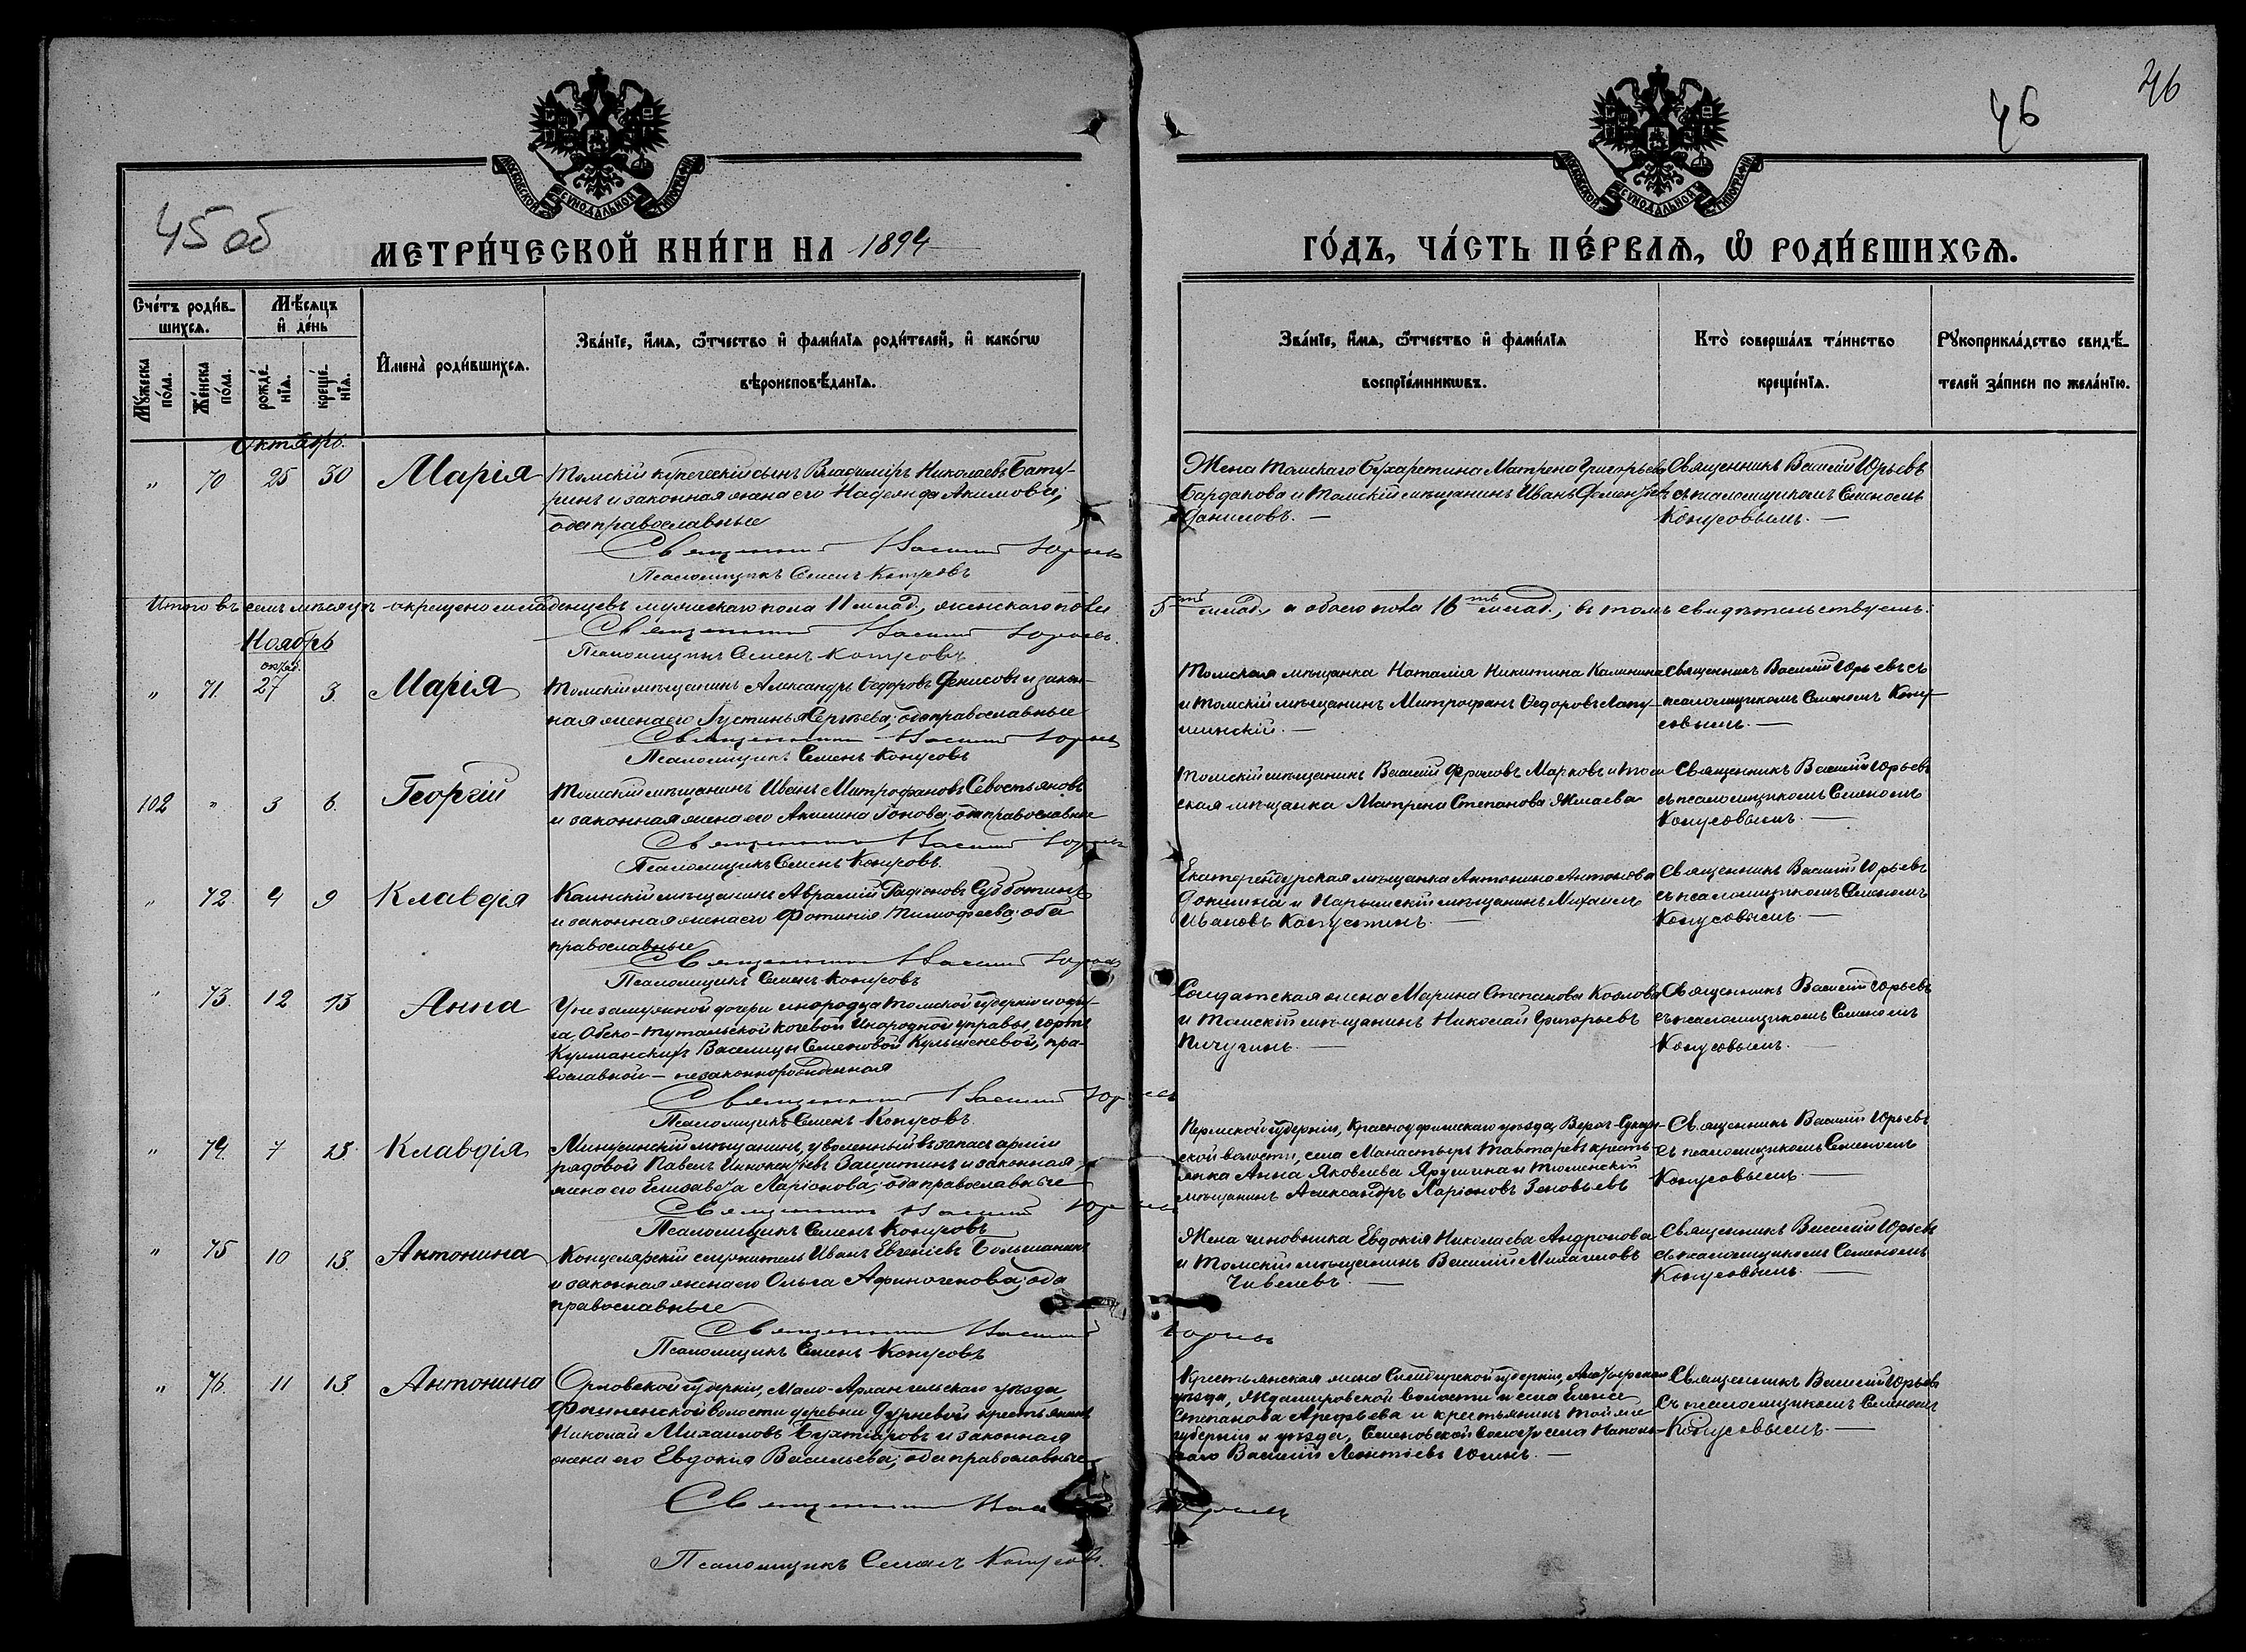 45 об
46
46
МОСКОВСКОЙ СѴНОДАЛЬНОЙ ТИПОГРАФІИ
МОСКОВСКОЙ СѴНОДАЛЬНОЙ ТИПОГРАФІИ
МЕТРИ́ЧЕСКОЙ КНИ́ГИ НА 1894
ГО́ДЪ, ЧА́СТЬ ПЕ́РВАѦ, Ѡ҆ РОДИ́ВШИХСѦ.
Сче́тъ роди́в-
шихсѧ.
Мѣ́сѧцъ
и҆ де́нь
Мꙋ́жеска
по́ла.
Же́нска
по́ла.
рожде́-
нїѧ.
креще́-
нїѧ.
И҆мена̀ роди́вшихсѧ.
Зва́нїе, и҆́мѧ, ѻ҆́тчество и҆ фами́лїѧ роди́телей, и҆ како́гѡ
вѣроисповѣ́данїѧ.
Зва́нїе, и҆́мѧ, ѻ҆́тчество и҆ фами́лїѧ
воспрїе́мникѡвъ.
Кто̀ соверша́лъ та́инство
креще́нїѧ.
Рꙋкоприкла́дство свидѣ́-
телей за́писи по жела́нїю.
Октябрь.
" 70 25 30 Марія
Томскій купеческій сынъ Владиміръ Николаевъ Бату-
ринъ и законная жена его Надежда Акимовна;
оба православные
Священникъ Василій Юрьевъ
Псаломщикъ Семенъ Конусовъ
Жена Томскаго Бухаретина Матрена Григорьева
Бардакова и Томскій мѣщанинъ Иванъ
Даниловъ. —
Священникъ Василій Юрьевъ
съ псаломщикомъ Семеномъ
Конусовымъ. —
Итого въ семъ мѣсяцѣ окрещено младенцевъ мужескаго пола 11 млад., женскаго пола 5ть млад., а обоего пола 16ть млад.; въ томъ свидѣтельствуемъ:
Священникъ Василій Юрьевъ.
Псаломщикъ Семенъ Конусовъ
Ноябрь
октяб.
" 71. 27 3. Марія
Томскій мѣщанинъ Александръ Ѳедоровъ Денисовъ и закон-
ная жена его Густинья Сергѣева; оба православные
Священникъ Василій Юрьевъ
Псаломщикъ Семенъ Конусовъ
Томская мѣщанка Наталія Никитина Калинина
и Томскій мѣщанинъ Митрофанъ Ѳедоровъ Лапу-
шинскій. —
Священникъ Василій Юрьевъ съ
псаломщикомъ Семеномъ Кону-
совымъ. —
102 " 3 6. Георгій
Томскій мѣщанинъ Иванъ Митрофановъ Севостьяновъ
и законная жена его Акилина Іонова; оба православные
Священникъ Василій Юрьевъ
Псаломщикъ Семенъ Конусовъ.
Томскій мѣщанинъ Василій Фроловъ Марковъ и Том-
ская мѣщанка Матрена Степанова
Священникъ Василій Юрьевъ
съ псаломщикомъ Семеномъ
Конусовымъ. —
" 72. 4 9 Клавдія
Каинскій мѣщанинъ Аврамій Радіоновъ Субботинъ
и законная жена его Фотинія Тимофеева; оба
православные
Священникъ Василій Юрьевъ
Псаломщикъ Семенъ Конусовъ
Екатеренбурская мѣщанка Антонина Антонова
и Нарымскій мѣщанинъ Михаилъ
Ивановъ Капустинъ. —
Священникъ Василій Юрьевъ
съ псаломщикомъ Семеномъ
Конусовымъ. —
" 73. 12 13 Анна
У незамужной дочери инородца Томской губерніи и окру-
га, Обско-Тутальской кочевой Инородной управы, юртъ
Василицы Семеновой пра-
вославной — незаконнорожденная
Священникъ Василій Юрьевъ
Псаломщикъ Семенъ Конусовъ.
Солдатская жена Марина Степанова Козлова
и Томскій мѣщанинъ Николай Григорьевъ
Пичугинъ. —
Священникъ Василій Юрьевъ
съ псаломщикомъ Семеномъ
Конусовымъ. —
" 74. 7 13. Клавдія
Минусинскій мѣщанинъ, уволенный въ запасъ арміи
рядовой Павелъ Иннокентіевъ и законная
жена его Елизавета Ларіонова; оба православные
Священникъ Василій Юрьевъ
Псаломщикъ Семенъ Конусовъ
Пермской губерніи, Красноуфимскаго уѣзда,
ской волости, села Манастырь крестья-
янка Анна Яковлева и Тюменскій
мѣщанинъ Александръ Ларіоновъ Зеновьевъ
Священникъ Василій Юрьевъ
съ псаломщикомъ Семеномъ
Конусовымъ. —
" 75 10 13. Антонина
Канцелярскій служитель Иванъ Евгеніевъ Большанинъ
и законная жена его Ольга Афиногенова; оба
православные
Священникъ Василій Юрьевъ
Псаломщикъ Семенъ Конусовъ
Жена чиновника Евдокія Николаева Андронова
и Томскій мѣщанинъ Василій Михаиловъ
Чивелевъ. —
Священникъ Василій Юрьевъ
съ псаломщикомъ Семеномъ
Конусовымъ. —
" 76. 11 13. Антонина
Орловской губерніи, Мало-Архангельскаго уѣзда,
волости деревни Дурневой крестьянинъ
Николай Михаиловъ Бухтіаровъ и законная
жена его Евдокія Васильева; оба православные
Священникъ Василій Юрьевъ
Псаломщикъ Семенъ Конусовъ.
Крестьянская жена Симбирской губерніи,
уѣзда, волости и села
Степанова Арефьева и крестьянинъ той же
губерніи и уѣзда, Семеновской волости села
Василій Леонтіевъ
Священникъ Василій Юрьевъ
съ псаломщикомъ Семеномъ
Конусовымъ. —